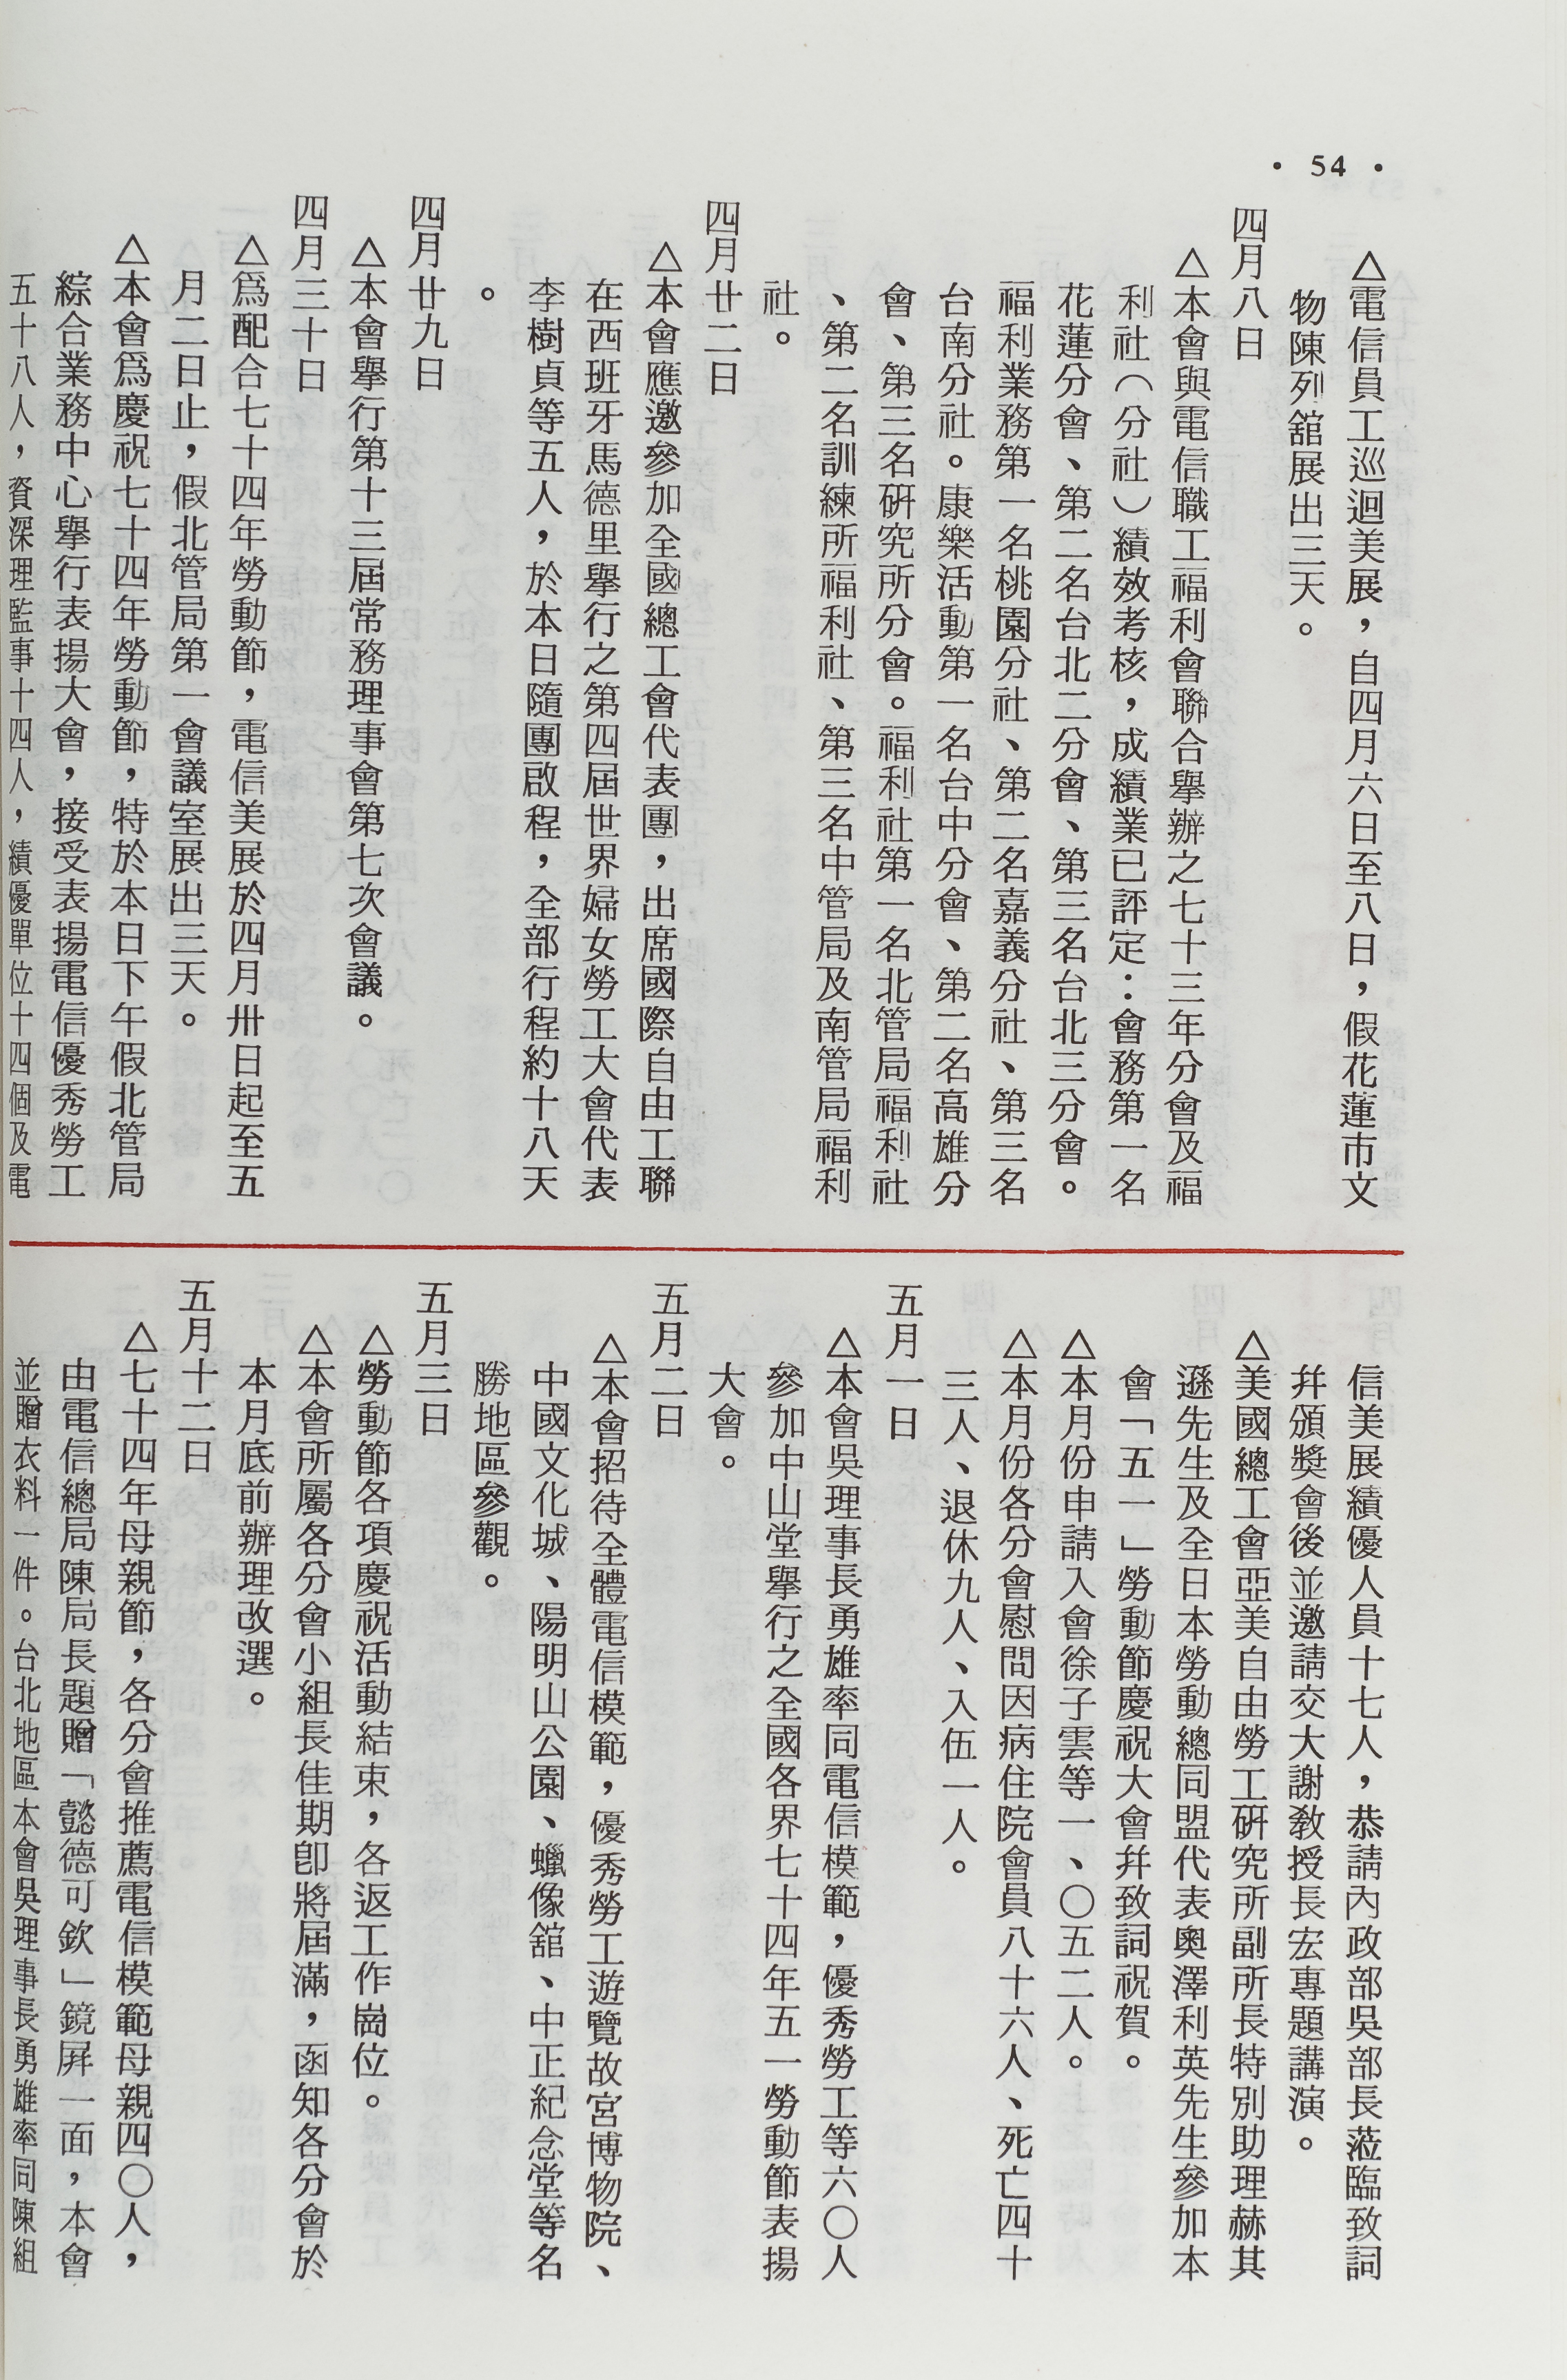 • 54 •
△電信員工巡迴美展，自四月六日至八日，假花蓮市文
物陳列舘展出三天。
四月八日
△本會與電信職工福利會聯合舉辦之七十三年分會及福
利社（分社）績效考核，成績業已評定：會務第一名
花蓮分會、第二名台北二分會、第三名台北三分會。
福利業務第一名桃園分社、第二名嘉義分社、第三名
台南分社。康樂活動第一名台中分會、第二名高雄分
會、第三名研究所分會。福利社第一名北管局福利社
、第二名訓練所福利社、第三名中管局及南管局福利
社。
四月廿二日
△本會應邀參加全國總工會代表團，出席國際自由工聯
在西班牙馬德里舉行之第四屆世界婦女勞工大會代表
李樹貞等五人，於本日隨團啟程，全部行程約十八天
。
四月廿九日
△本會舉行第十三屆常務理事會第七次會議。
四月三十日
△爲配合七十四年勞動節，電信美展於四月卅日起至五
月二日止，假北管局第一會議室展出三天。
△本會爲慶祝七十四年勞動節，特於本日下午假北管局
綜合業務中心舉行表揚大會，接受表揚電信優秀勞工
五十八人，資深理監事十四人，績優單位十四個及電
信美展績優人員十七人，恭請內政部吳部長蒞臨致詞
幷頒獎會後並邀請交大謝敎授長宏專題講演。
△美國總工會亞美自由勞工研究所副所長特別助理赫其
遜先生及全日本勞動總同盟代表奧澤利英先生參加本
會「五一」勞動節慶祝大會幷致詞祝賀。
△本月份申請入會徐子雲等一、〇五二人。
△本月份各分會慰問因病住院會員八十六人、死亡四十
三人、退休九人、入伍一人。
五月一日
△本會吳理事長勇雄率同電信模範，優秀勞工等六〇人
參加中山堂舉行之全國各界七十四年五一勞動節表揚
大會。
五月二日
△本會招待全體電信模範，優秀勞工遊覽故宮博物院、
中國文化城、陽明山公園、蠟像舘、中正紀念堂等名
勝地區參觀。
五月三日
△勞動節各項慶祝活動結束，各返工作崗位。
△本會所屬各分會小組長佳期卽將屆滿，函知各分會於
本月底前辦理改選。
五月十二日
△七十四年母親節，各分會推薦電信模範母親四〇人，
由電信總局陳局長題贈「懿德可欽」鏡屛一面，本會
並贈衣料一件。台北地區本會吳理事長勇雄率同陳組